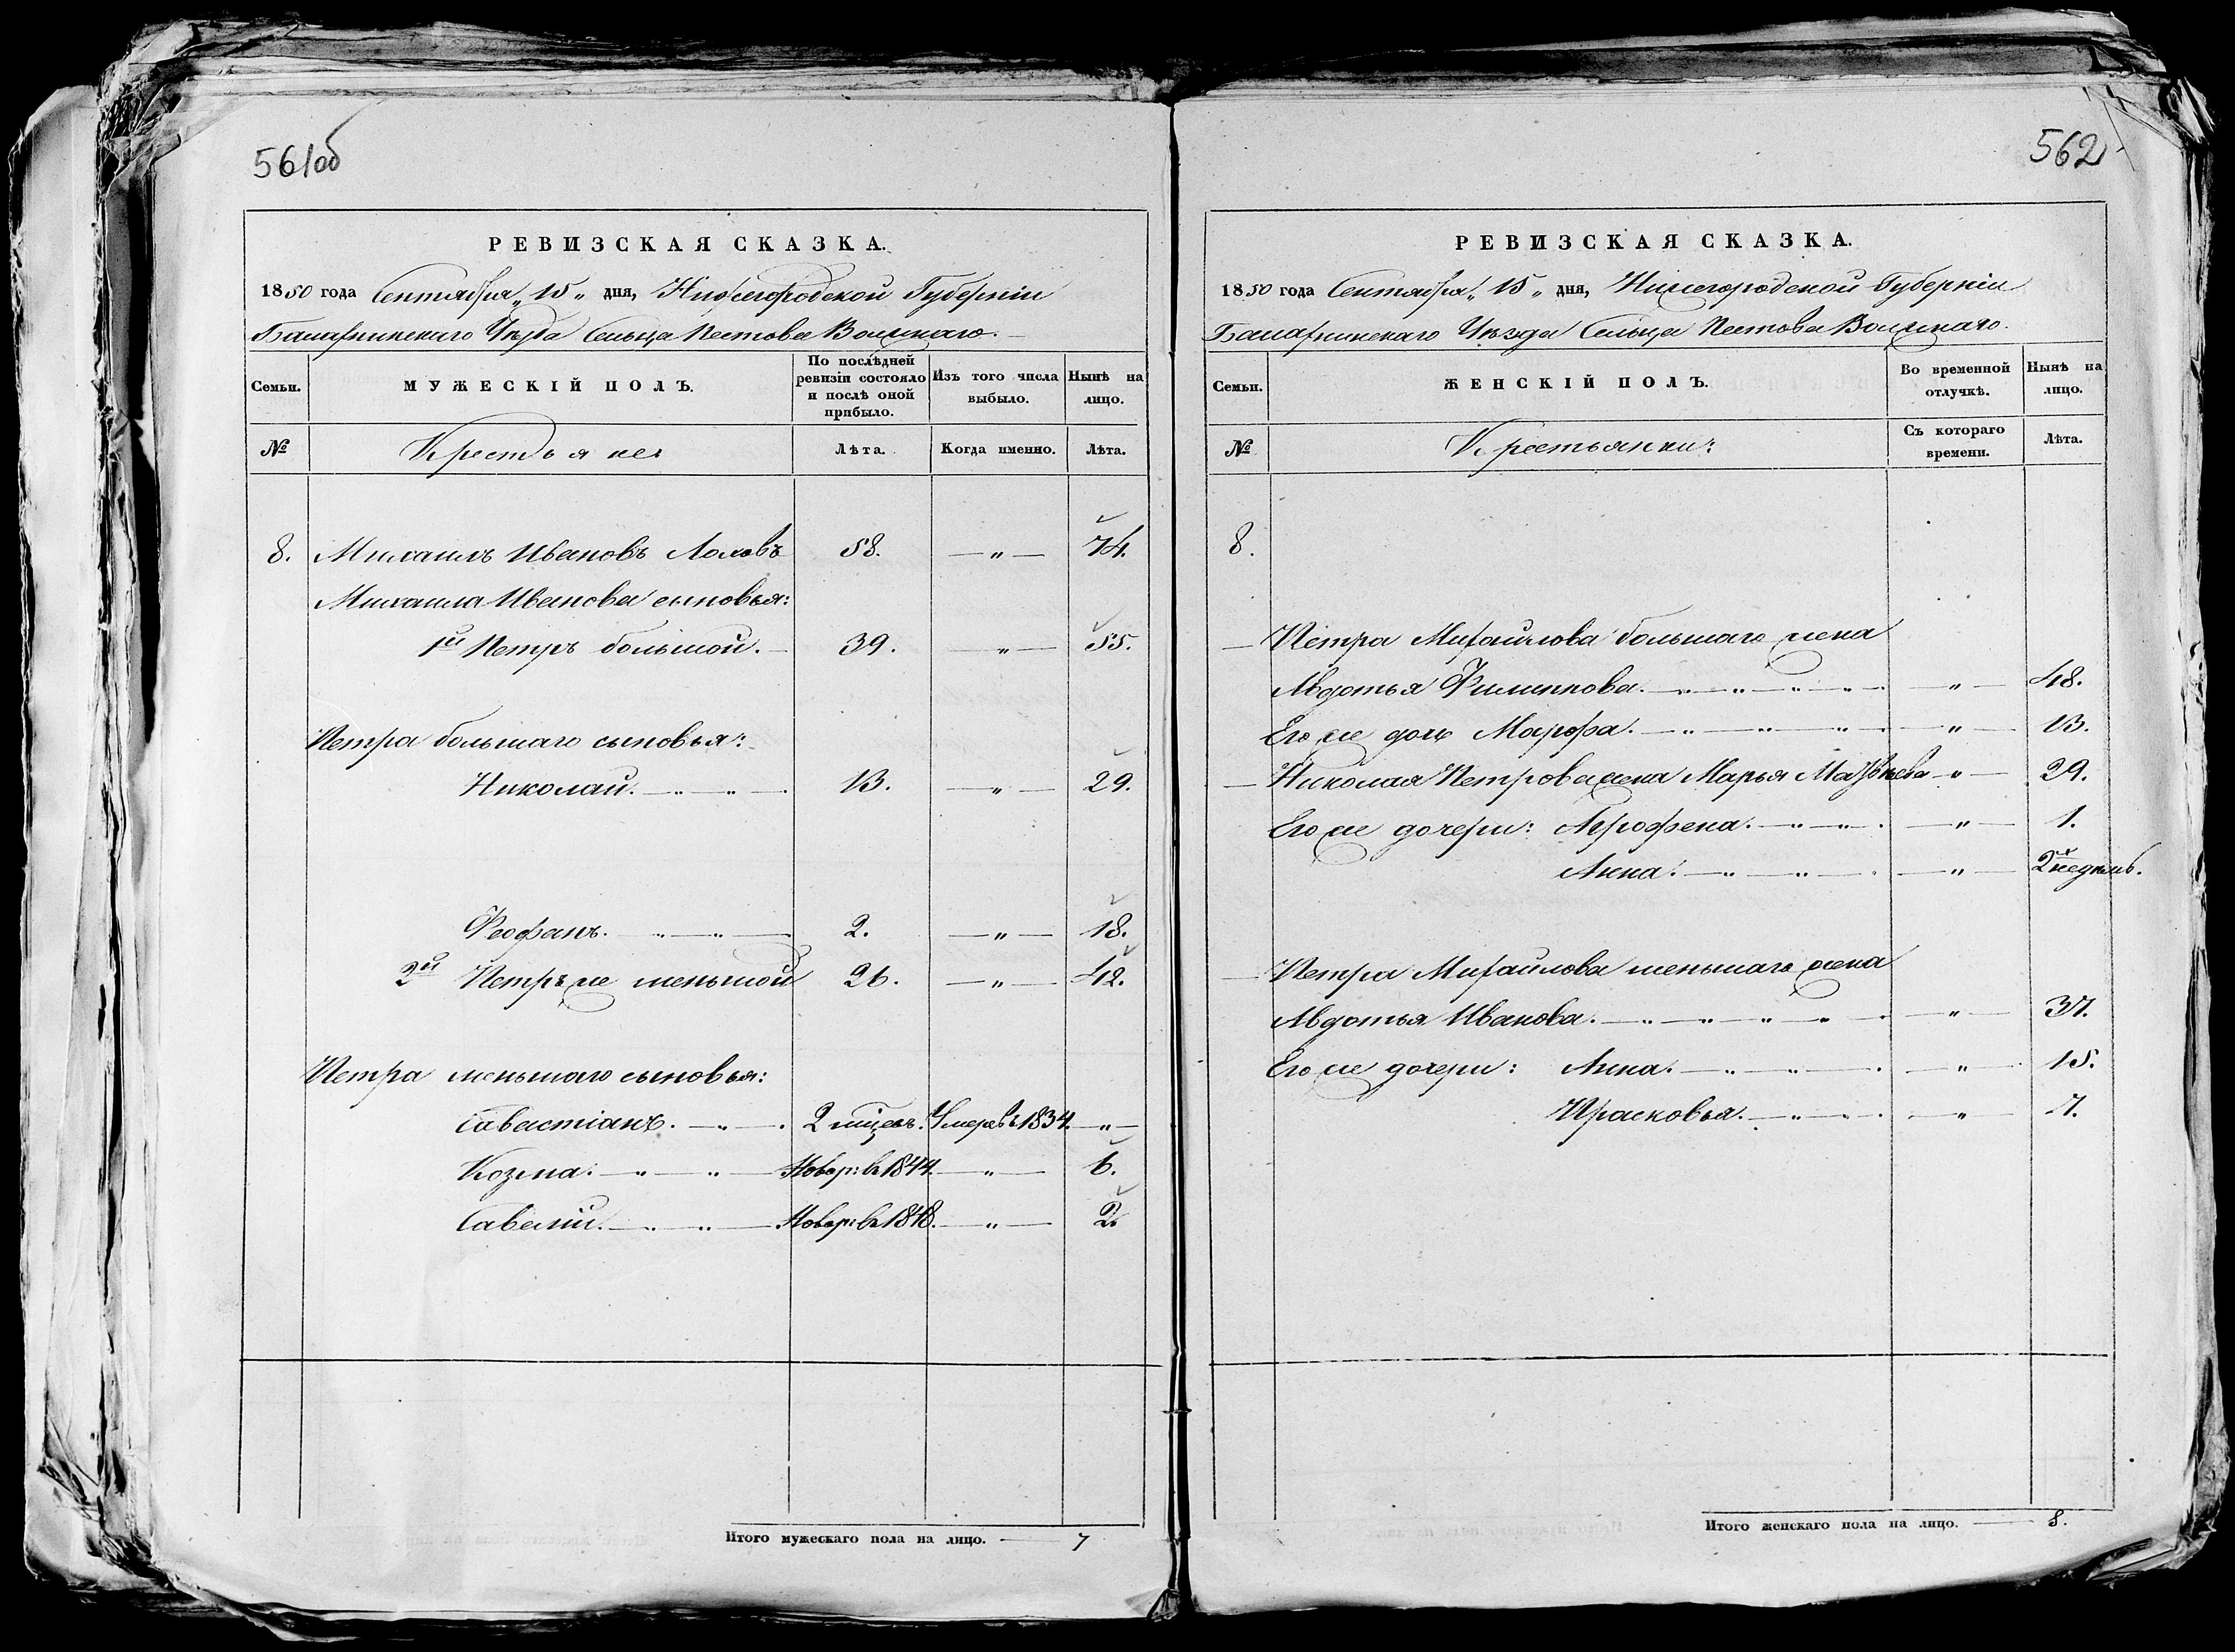 561об
РЕВИЗСКАЯ СКАЗКА.
1850 года Сентября „15„ дня, Нижегородской Губерніи
Балахнинскаго Уѣзда Сельца Пестова Волжскаго.
Семьи. МУЖЕСКІЙ ПОЛЪ. По послѣдней ревизіи состояло и послѣ оной прибыло. Изъ того числа выбыло. Нынѣ на лицо.
№ Крестьяне: Лѣта. Когда именно. Лѣта.
8. Михаилъ Ивановъ 58. — „ — 74.
Михаила Иванова сыновья:
1й Петръ большой. 39. — „ — 55.
Петра большаго сыновья:
Николай. 13. — „ — 29.
Феофанъ. 2. — „ — 18.
2й Петръ же меньшой 26. — „ — 42.
Петра меньшаго сыновья:
Савастіанъ. 2 мѣсец. Умеръ въ 1834. — „ —
Козма. Новор: въ 1844. — „ — 6.
Савелій. Новор: въ 1848. — „ — 2.
Итого мужескаго пола на лицо. — 7
562
РЕВИЗСКАЯ СКАЗКА.
1850 года Сентября „15„ дня, Нижегородской Губерніи
Балахнинскаго Уѣзда Сельца Пестова Волжскаго.
Семьи. ЖЕНСКІЙ ПОЛЪ. Во временной отлучкѣ. Нынѣ на лицо.
№ Крестьянки: Съ котораго времени. Лѣта.
8.
— Петра Михайлова большаго жена
Авдотья Филиппова. — „ — 48.
Его же дочь Марфа. — „ — 13.
— Николая Петрова жена Марья Матвѣева — „ — 29.
Его же дочери: Агрофена. — „ — 1.
Анна. — „ — 2х недѣль.
— Петра Михайлова меньшаго жена
Авдотья Иванова. — „ — 37.
Его же дочери: Анна. — „ — 15.
Прасковья. — „ — 7.
Итого женскаго пола на лицо. — 8.